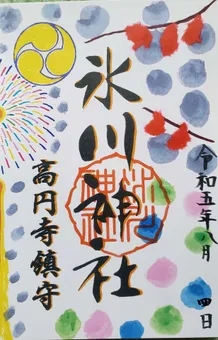 令和五年八月
四日
氷川神社
高円寺鎮守